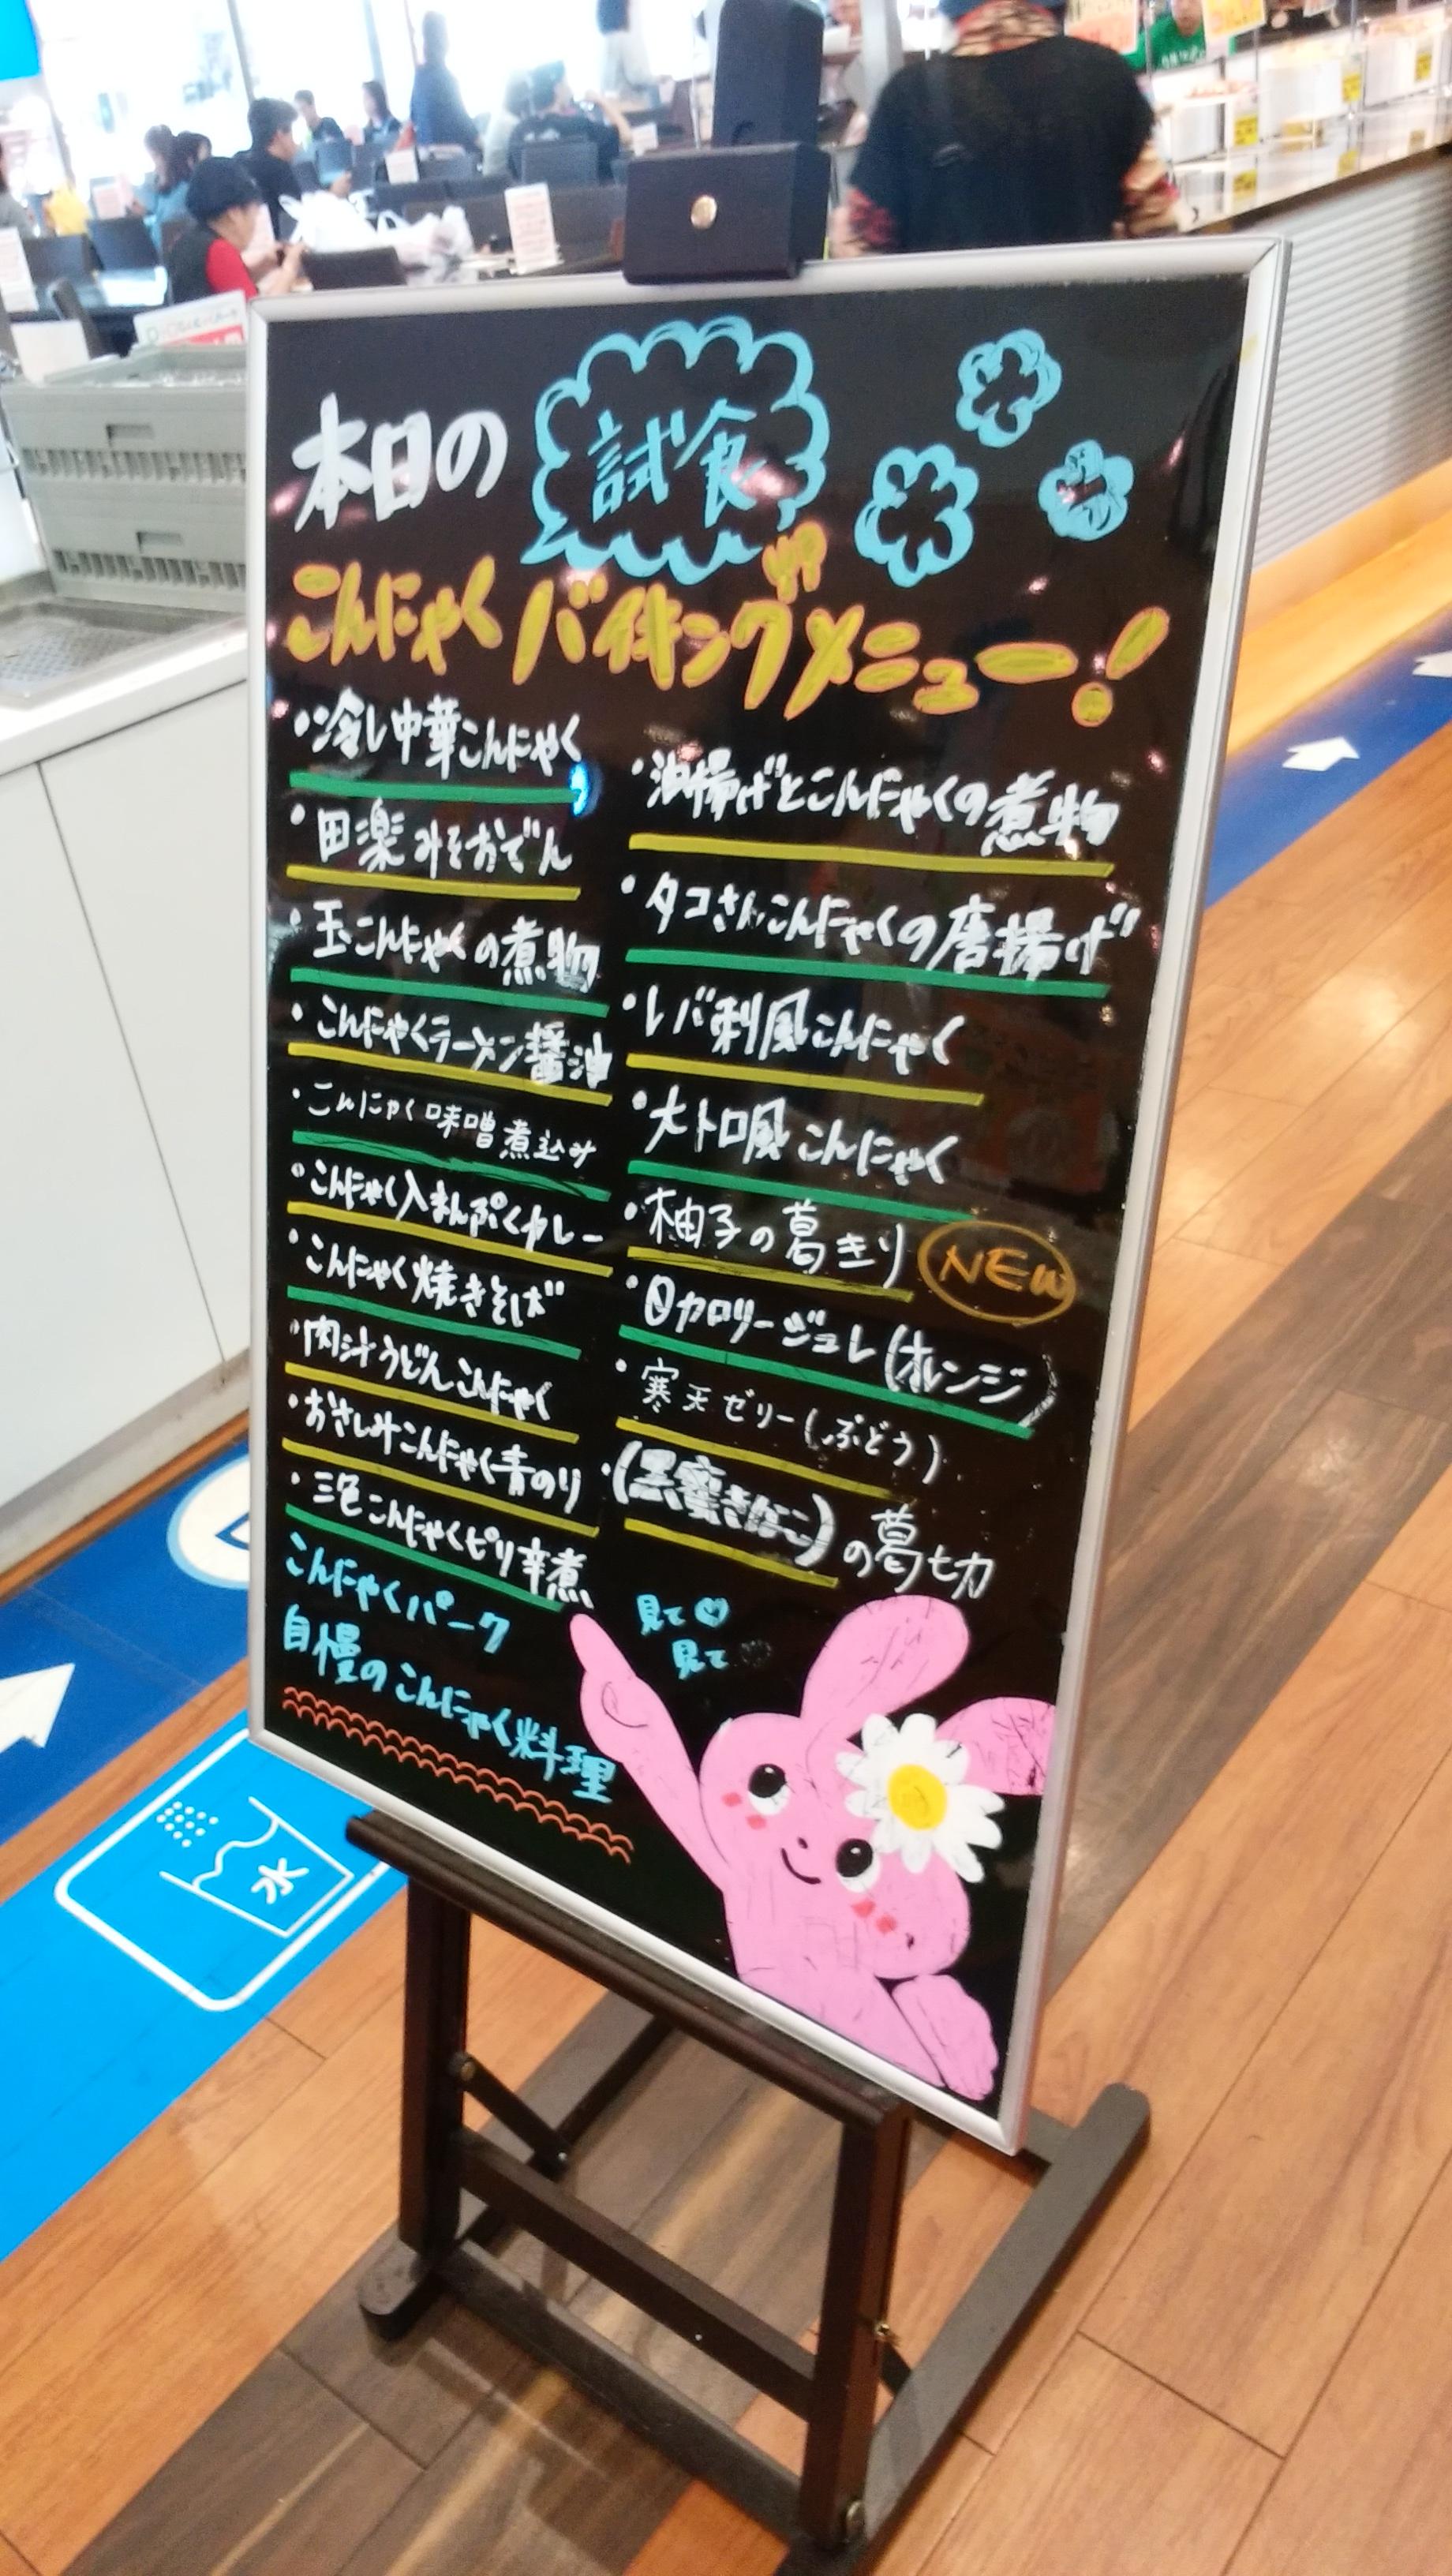 本日の 試食
こんにゃくバイキングメニュー！
・冷し中華こんにゃく
・田楽みそおでん
・玉こんにゃくの煮物
・こんにゃくラーメン醤油
・こんにゃく味噌煮込み
・こんにゃく入まんぷくカレー
・こんにゃく焼きそば
・肉汁うどんこんにゃく
・おさしみこんにゃく青のり
・三色こんにゃくピリ辛煮
・油揚げとこんにゃくの煮物
・タコさんこんにゃくの唐揚げ
・レバ刺風こんにゃく
・大トロ風こんにゃく
・柚子の葛きり NEW
・0カロリージュレ(オレンジ)
・寒天ゼリー(ぶどう)
・(黒蜜きなこ)の葛切
こんにゃくパーク
自慢のこんにゃく料理
見て♡
見て♡
水